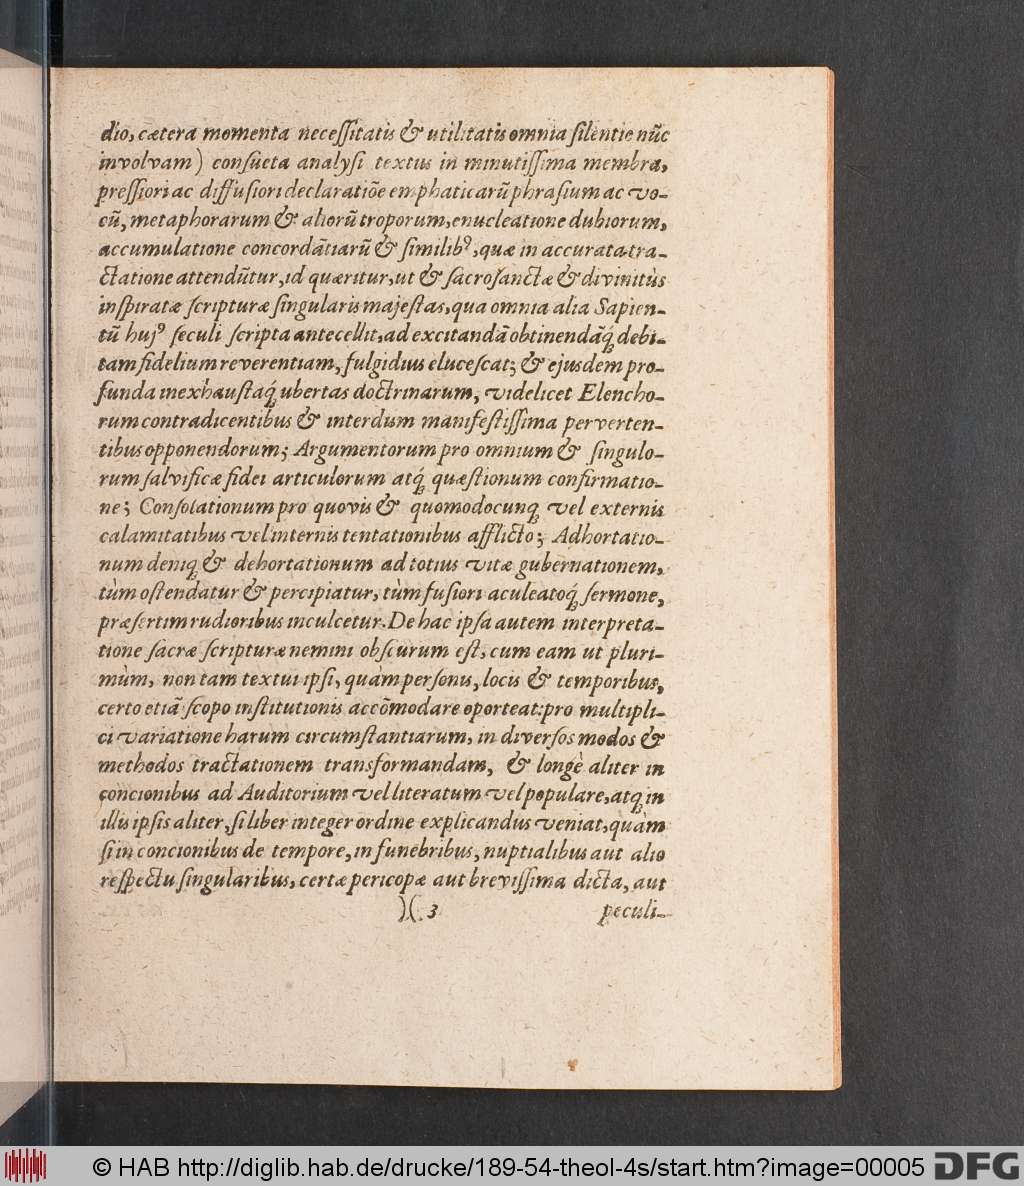 dio, cætera momenta necessitatis & utilitatis omnia silentie nūc
involvam) consueta analysi textus in minutissima membra,
pressiori ac diffusiori declaratiōe emphaticarū phrasium ac vo-
cū, metaphorarum & aliorū troporum, enucleatione dubiorum,
accumulatione concordātiarū & similibꝰ, quæ in accurata tra-
ctatione attendūtur, id quæritur, ut & sacrosanctæ & divinitùs
inspiratæ scripturæ singularis majestas, qua omnia alia Sapien-
tū hujꝰ seculi scripta antecellit, ad excitandā obtinendāq́ debi-
tam fidelium reverentiam, fulgidius elucescat; & ejusdem pro-
funda inexhaustaq́ ubertas doctrinarum, videlicet Elencho-
rum contradicentibus & interdum manifestissima perverten-
tibus opponendorum; Argumentorum pro omnium & singulo-
rum salvificæ fidei articulorum atq́ quæstionum confirmatio-
ne; Consolationum pro quovis & quomodocunq vel externis
calamitatibus vel internis tentationibus afflicto; Adhortatio-
num deniq & dehortationum ad totius vitæ gubernationem,
tùm ostendatur & percipiatur, tùm fusiori aculeatoq́ sermone,
præsertim rudioribus inculcetur. De hac ipsa autem interpreta-
tione sacræ scripturæ nemini obscurum est, cum eam ut pluri-
mùm, non tam textui ipsi, quàm personis, locis & temporibus,
certo etiā scopo institutionis accōmodare oporteat: pro multipli-
ci variatione harum circumstantiarum, in diversos modos &
methodos tractationem transformandam, & longè aliter in
concionibus ad Auditorium vel literatum vel populare, atq in
illis ipsis aliter, si liber integer ordine explicandus veniat, quàm
si in concionibus de tempore, in funebribus, nuptialibus aut alio
respectu singularibus, certæ pericopæ aut brevissima dicta, aut
)(. 3 peculi-
© HAB http://diglib.hab.de/drucke/189-54-theol-4s/start.htm?image=00005 DFG